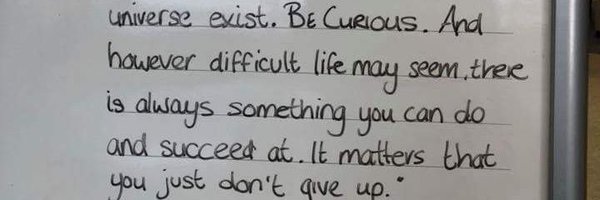 universe exist. BE CURIOUS. And
however difficult life may seem, there
is always something you can do
and succeed at. It matters that
you just don't give up."